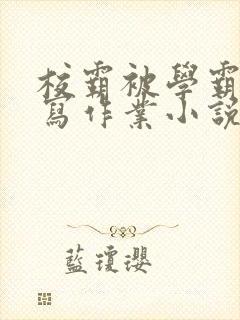 校霸被學霸
寫作業小說
藍瓊瓔